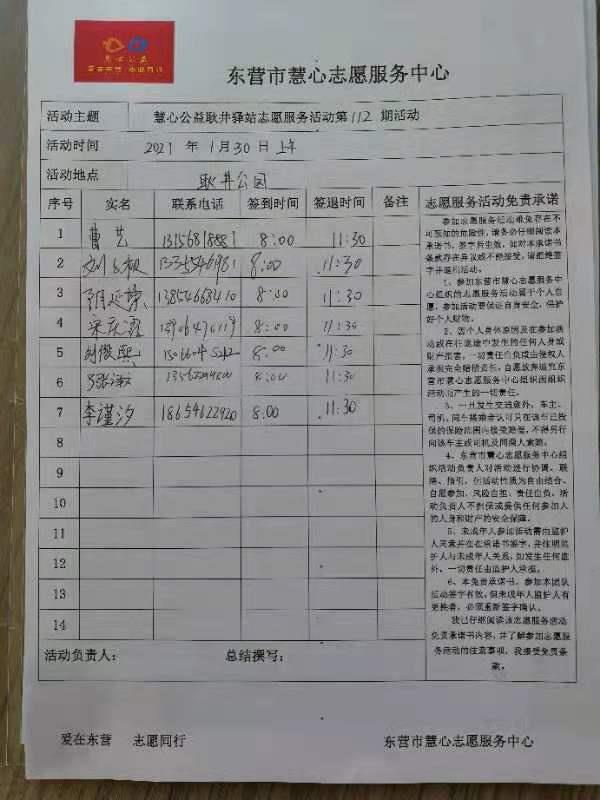 慧心公益
爱在东营·志愿同行
东营市慧心志愿服务中心
活动主题 慧心公益耿井驿站志愿服务活动第112期活动
活动时间 2021年1月30日上午
活动地点 耿井公园
序号 实名 联系电话 签到时间 签退时间 备注 志愿服务活动免责承诺
1 曹艺 8:00 11:30
2 8:00 11:30
3 13854668410 8:00 11:30
4 8:00 11:30
5 刘俊熙 8:00 11:30
6 8:00 11:30
7 李谨汐 18654622920 8:00 11:30
8
9
10
11
12
13
14
参加志愿服务活动难免存在不
可预知的危险性，请务必仔细阅读本
承诺书，签字后生效，如对本承诺书
条款存在异议或不能接受，请拒绝签
字并退出活动。
1、参加东营市慧心志愿服务中
心组织的志愿服务活动属于个人自
愿，参加活动要保证自身安全，保护
好个人财物。
2、因个人身体原因及在参加活
动或在往返途中发生的任何人身或
财产损害，一切责任自负或由侵权人
承担完全赔偿责任，自愿放弃追究东
营市慧心志愿服务中心组织因组织
活动而产生的一切责任。
3、一旦发生交通意外，车主、
司机、同车搭乘者认可只在该车已投
保的保险范围内接受赔偿，不得另行
向该车主或司机及同乘人索赔。
4、东营市慧心志愿服务中心组
织活动负责人对活动进行协调、联
络、指引，但活动性质为自由结合、
自愿参加、风险自担、责任自负，活
动负责人不担保或提供任何参加人
的人身和财产的安全保障。
5、未成年人参加活动需由监护
人同意并在在承诺书签字，并注明监
护人与未成年人关系，如发生任何意
外，一切责任由监护人承担。
6、本免责承诺书，参加本团队
活动签字有效，但未成年人监护人有
更换者，必须重新签字确认。
我已仔细阅读该志愿服务活动
免责承诺书内容，并了解参加志愿服
务活动的注意事项，我接受免责条
款。
活动负责人： 总结撰写：
爱在东营 志愿同行 东营市慧心志愿服务中心